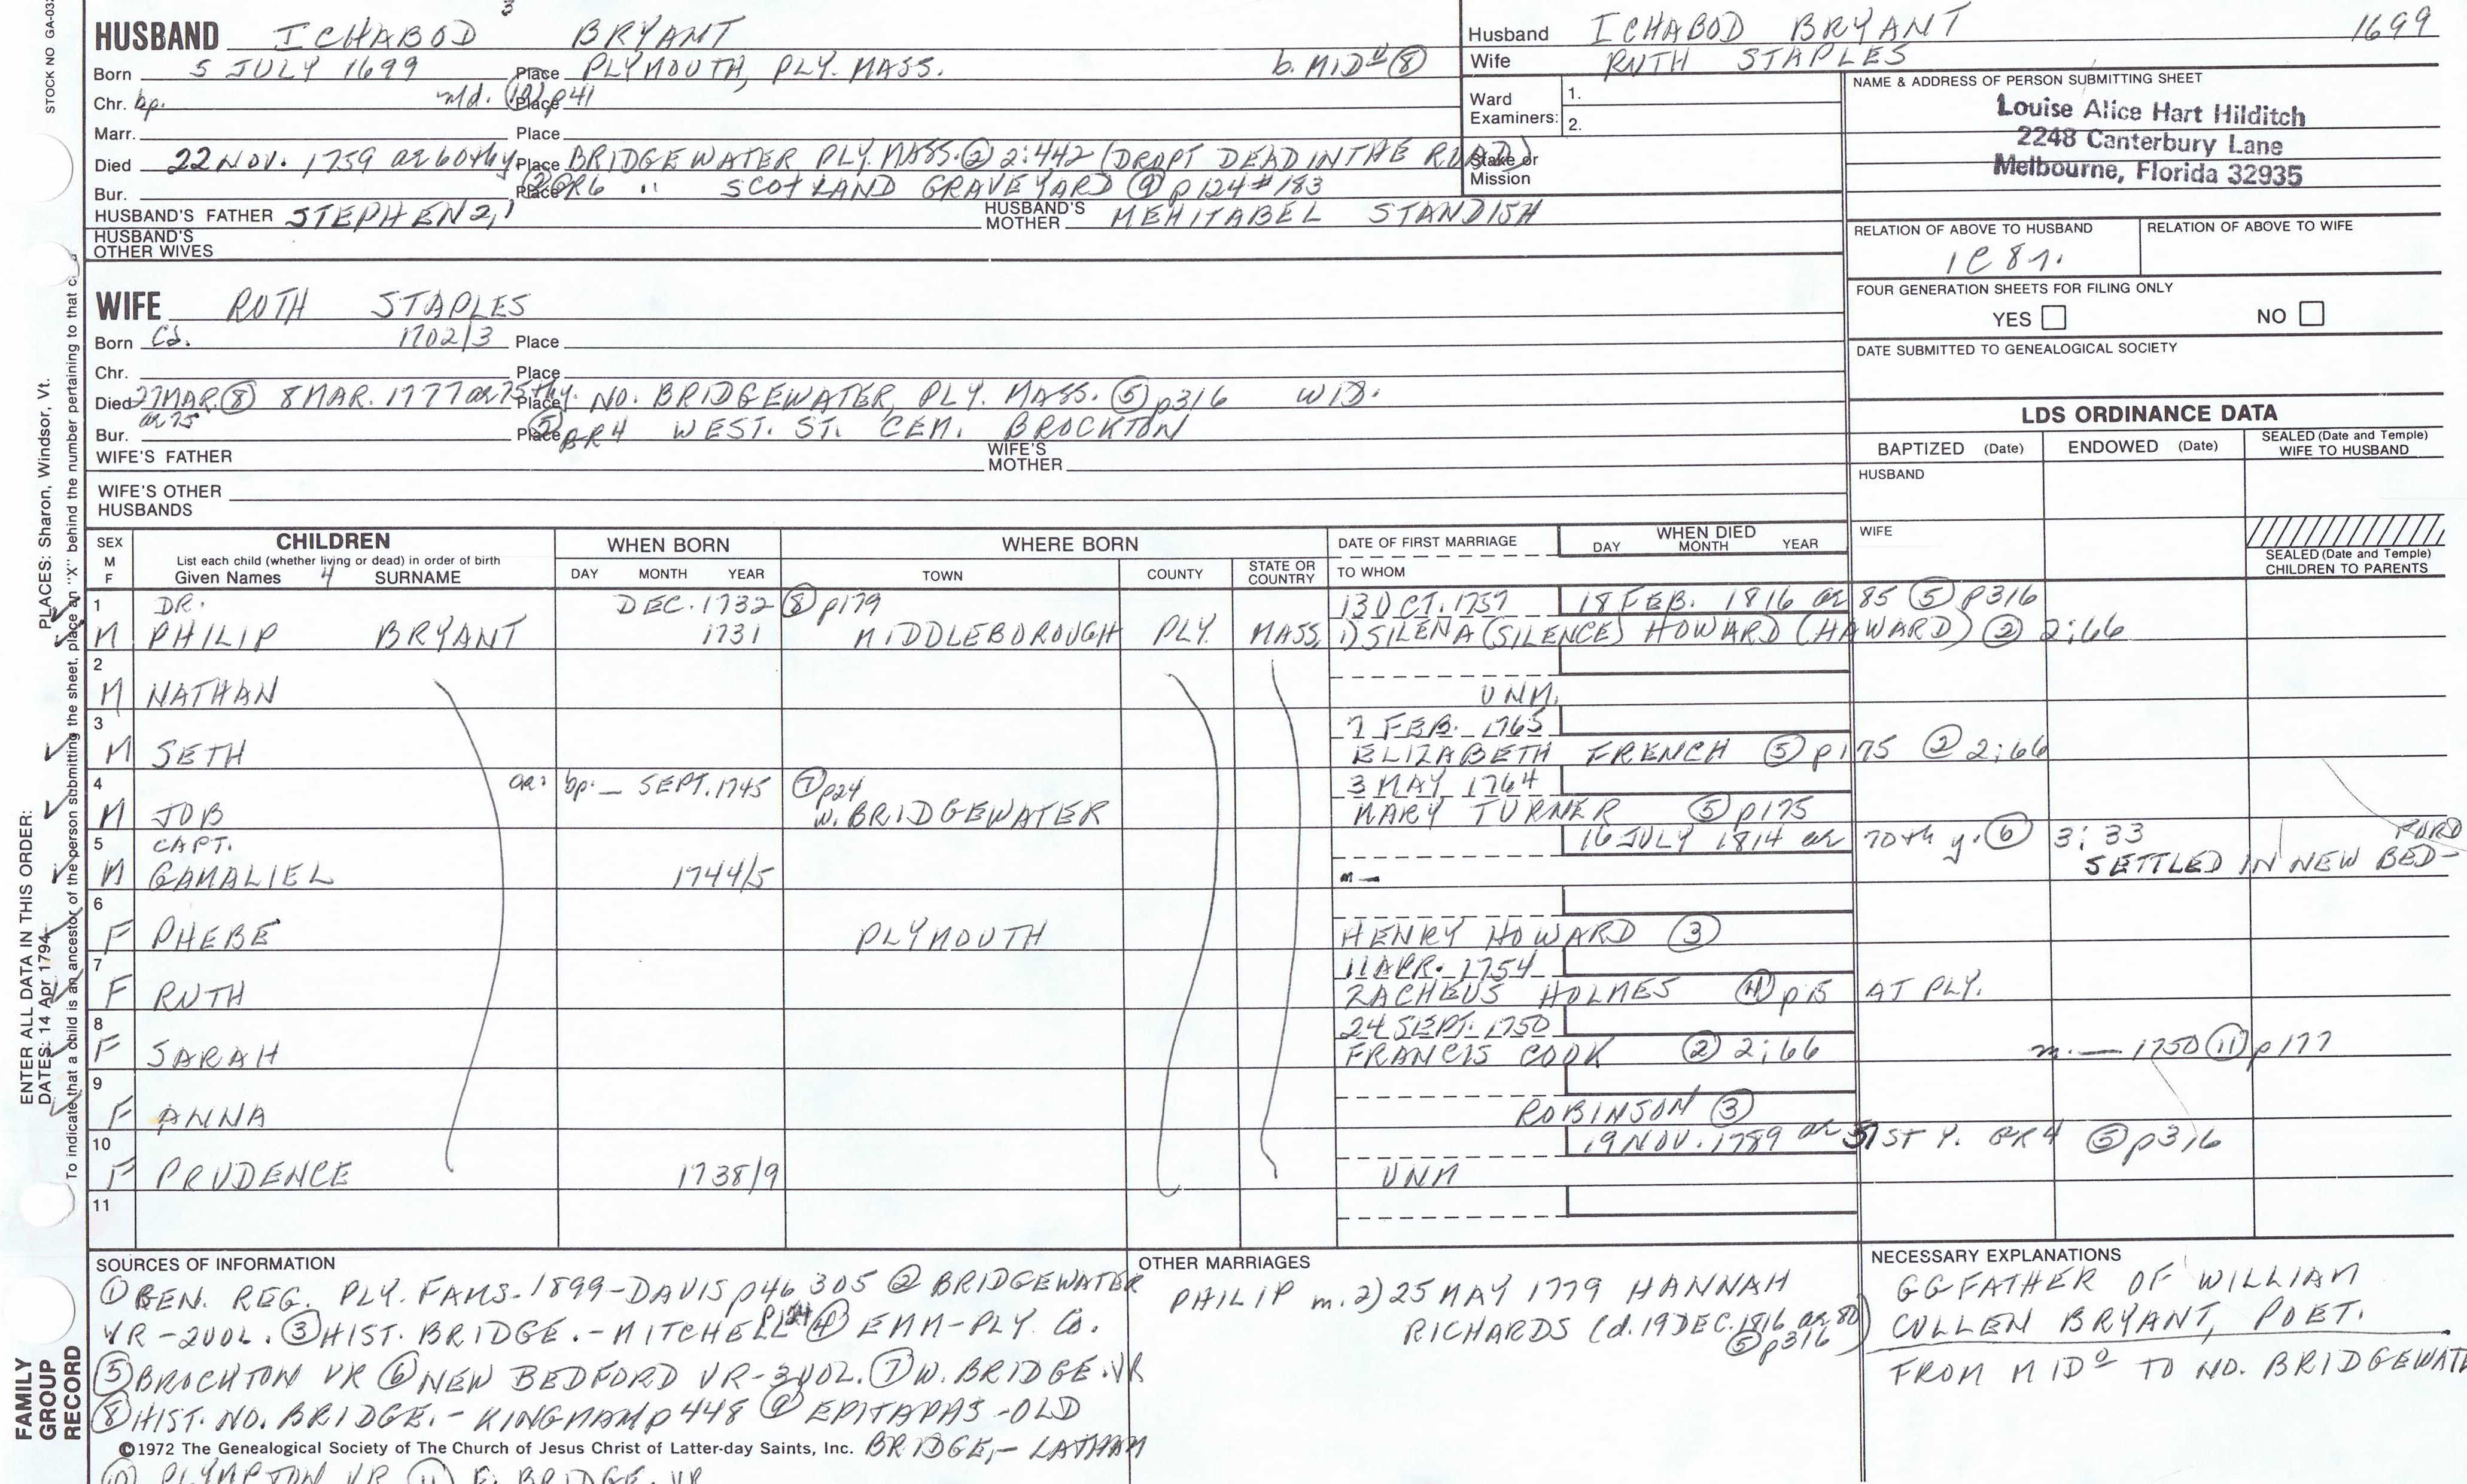 STOCK NO GA-032
3
HUSBAND ICHABOD BRYANT
Born 5 JULY 1699 Place PLYMOUTH, PLY. MASS. b. MIDd (8)
Chr. bp. md. (10) p41 Place
Marr. Place
Died 22 NOV. 1759 ae 60th y. Place BRIDGEWATER PLY. MASS. (2) 2:442 (DROPT DEAD IN THE ROAD)
Bur. Place (2) GR6 " SCOTLAND GRAVEYARD (9) p124 #183
HUSBAND'S FATHER STEPHEN 2, 1 HUSBAND'S MOTHER MEHITABEL STANDISH
HUSBAND'S OTHER WIVES
WIFE RUTH STAPLES
Born Ca. 1702/3 Place
Chr. Place
Died 27 MAR. (8) ae 75 8 MAR. 1777 ae 75th y. Place NO. BRIDGEWATER, PLY. MASS. (5) p316 WID.
Bur. Place (5) GR4 WEST. ST. CEM. BROCKTON
WIFE'S FATHER WIFE'S MOTHER
WIFE'S OTHER HUSBANDS
Husband ICHABOD BRYANT 1699
Wife RUTH STAPLES
Ward Examiners: 1.
2.
Stake or Mission
NAME & ADDRESS OF PERSON SUBMITTING SHEET
Louise Alice Hart Hilditch
2248 Canterbury Lane
Melbourne, Florida 32935
RELATION OF ABOVE TO HUSBAND RELATION OF ABOVE TO WIFE
1C 8r.
FOUR GENERATION SHEETS FOR FILING ONLY
YES NO
DATE SUBMITTED TO GENEALOGICAL SOCIETY
LDS ORDINANCE DATA
BAPTIZED (Date) ENDOWED (Date) SEALED (Date and Temple) WIFE TO HUSBAND
HUSBAND
WIFE
SEALED (Date and Temple) CHILDREN TO PARENTS
SEX M F CHILDREN WHEN BORN WHERE BORN DATE OF FIRST MARRIAGE WHEN DIED
List each child (whether living or dead) in order of birth
Given Names 4 SURNAME DAY MONTH YEAR TOWN COUNTY STATE OR COUNTRY TO WHOM DAY MONTH YEAR
1 DR. DEC. 1732 (8) p179 13 OCT. 1757 18 FEB. 1816 ae 85 (5) p316
M PHILIP BRYANT 1731 MIDDLEBOROUGH PLY. MASS. 1) SILENA (SILENCE) HOWARD (HAWARD) (2) 2:66
2
M NATHAN UNM.
3 7 FEB. 1765
M SETH ELIZABETH FRENCH (5) p175 (2) 2:66
4 or: bp. — SEPT. 1745 (7) p24 3 MAY 1764
M JOB W. BRIDGEWATER MARY TURNER (5) p175
5 CAPT. 16 JULY 1814 ae 70th y. (6) 3:33
M GAMALIEL 1744/5 m — SETTLED IN NEW BED-FORD
6
F PHEBE PLYMOUTH HENRY HOWARD (3)
7 11 APR. 1754
F RUTH ZACHEUS HOLMES (4) p15 AT PLY.
8 24 SEPT. 1750
F SARAH FRANCIS COOK (2) 2:66 m. — 1750 (11) p177
9
F ANNA ROBINSON (3)
10 19 NOV. 1789 ae 51ST Y. GR4 (5) p316
F PRUDENCE 1738/9 UNM
11
SOURCES OF INFORMATION
(1) GEN. REG. PLY. FAMS. 1899-DAVIS p46, 305 (2) BRIDGEWATER
VR-2VOL. (3) HIST. BRIDGE.-MITCHELL p124 (4) EMM-PLY. Co.
(5) BROCKTON VR (6) NEW BEDFORD VR-3VOL. (7) W. BRIDGE. VR
(8) HIST. NO. BRIDGE.-KINGMAN p448 (9) EPITAPHS-OLD
©1972 The Genealogical Society of The Church of Jesus Christ of Latter-day Saints, Inc. BRIDGE.-LATHAM
(10) PLYMPTON VR (11) E. BRIDGE. VR
OTHER MARRIAGES
PHILIP m. 2) 25 MAY 1779 HANNAH
RICHARDS (d. 19 DEC. 1816 ae 80)
(5) p316
NECESSARY EXPLANATIONS
GGFATHER OF WILLIAM
CULLEN BRYANT, POET.
FROM MIDd TO NO. BRIDGEWATE
PLACES: Sharon, Windsor, Vt.
ENTER ALL DATA IN THIS ORDER:
DATES: 14 Apr 1794
To indicate that a child is an ancestor of the person submitting the sheet, place an "X" behind the number pertaining to that
FAMILY GROUP RECORD